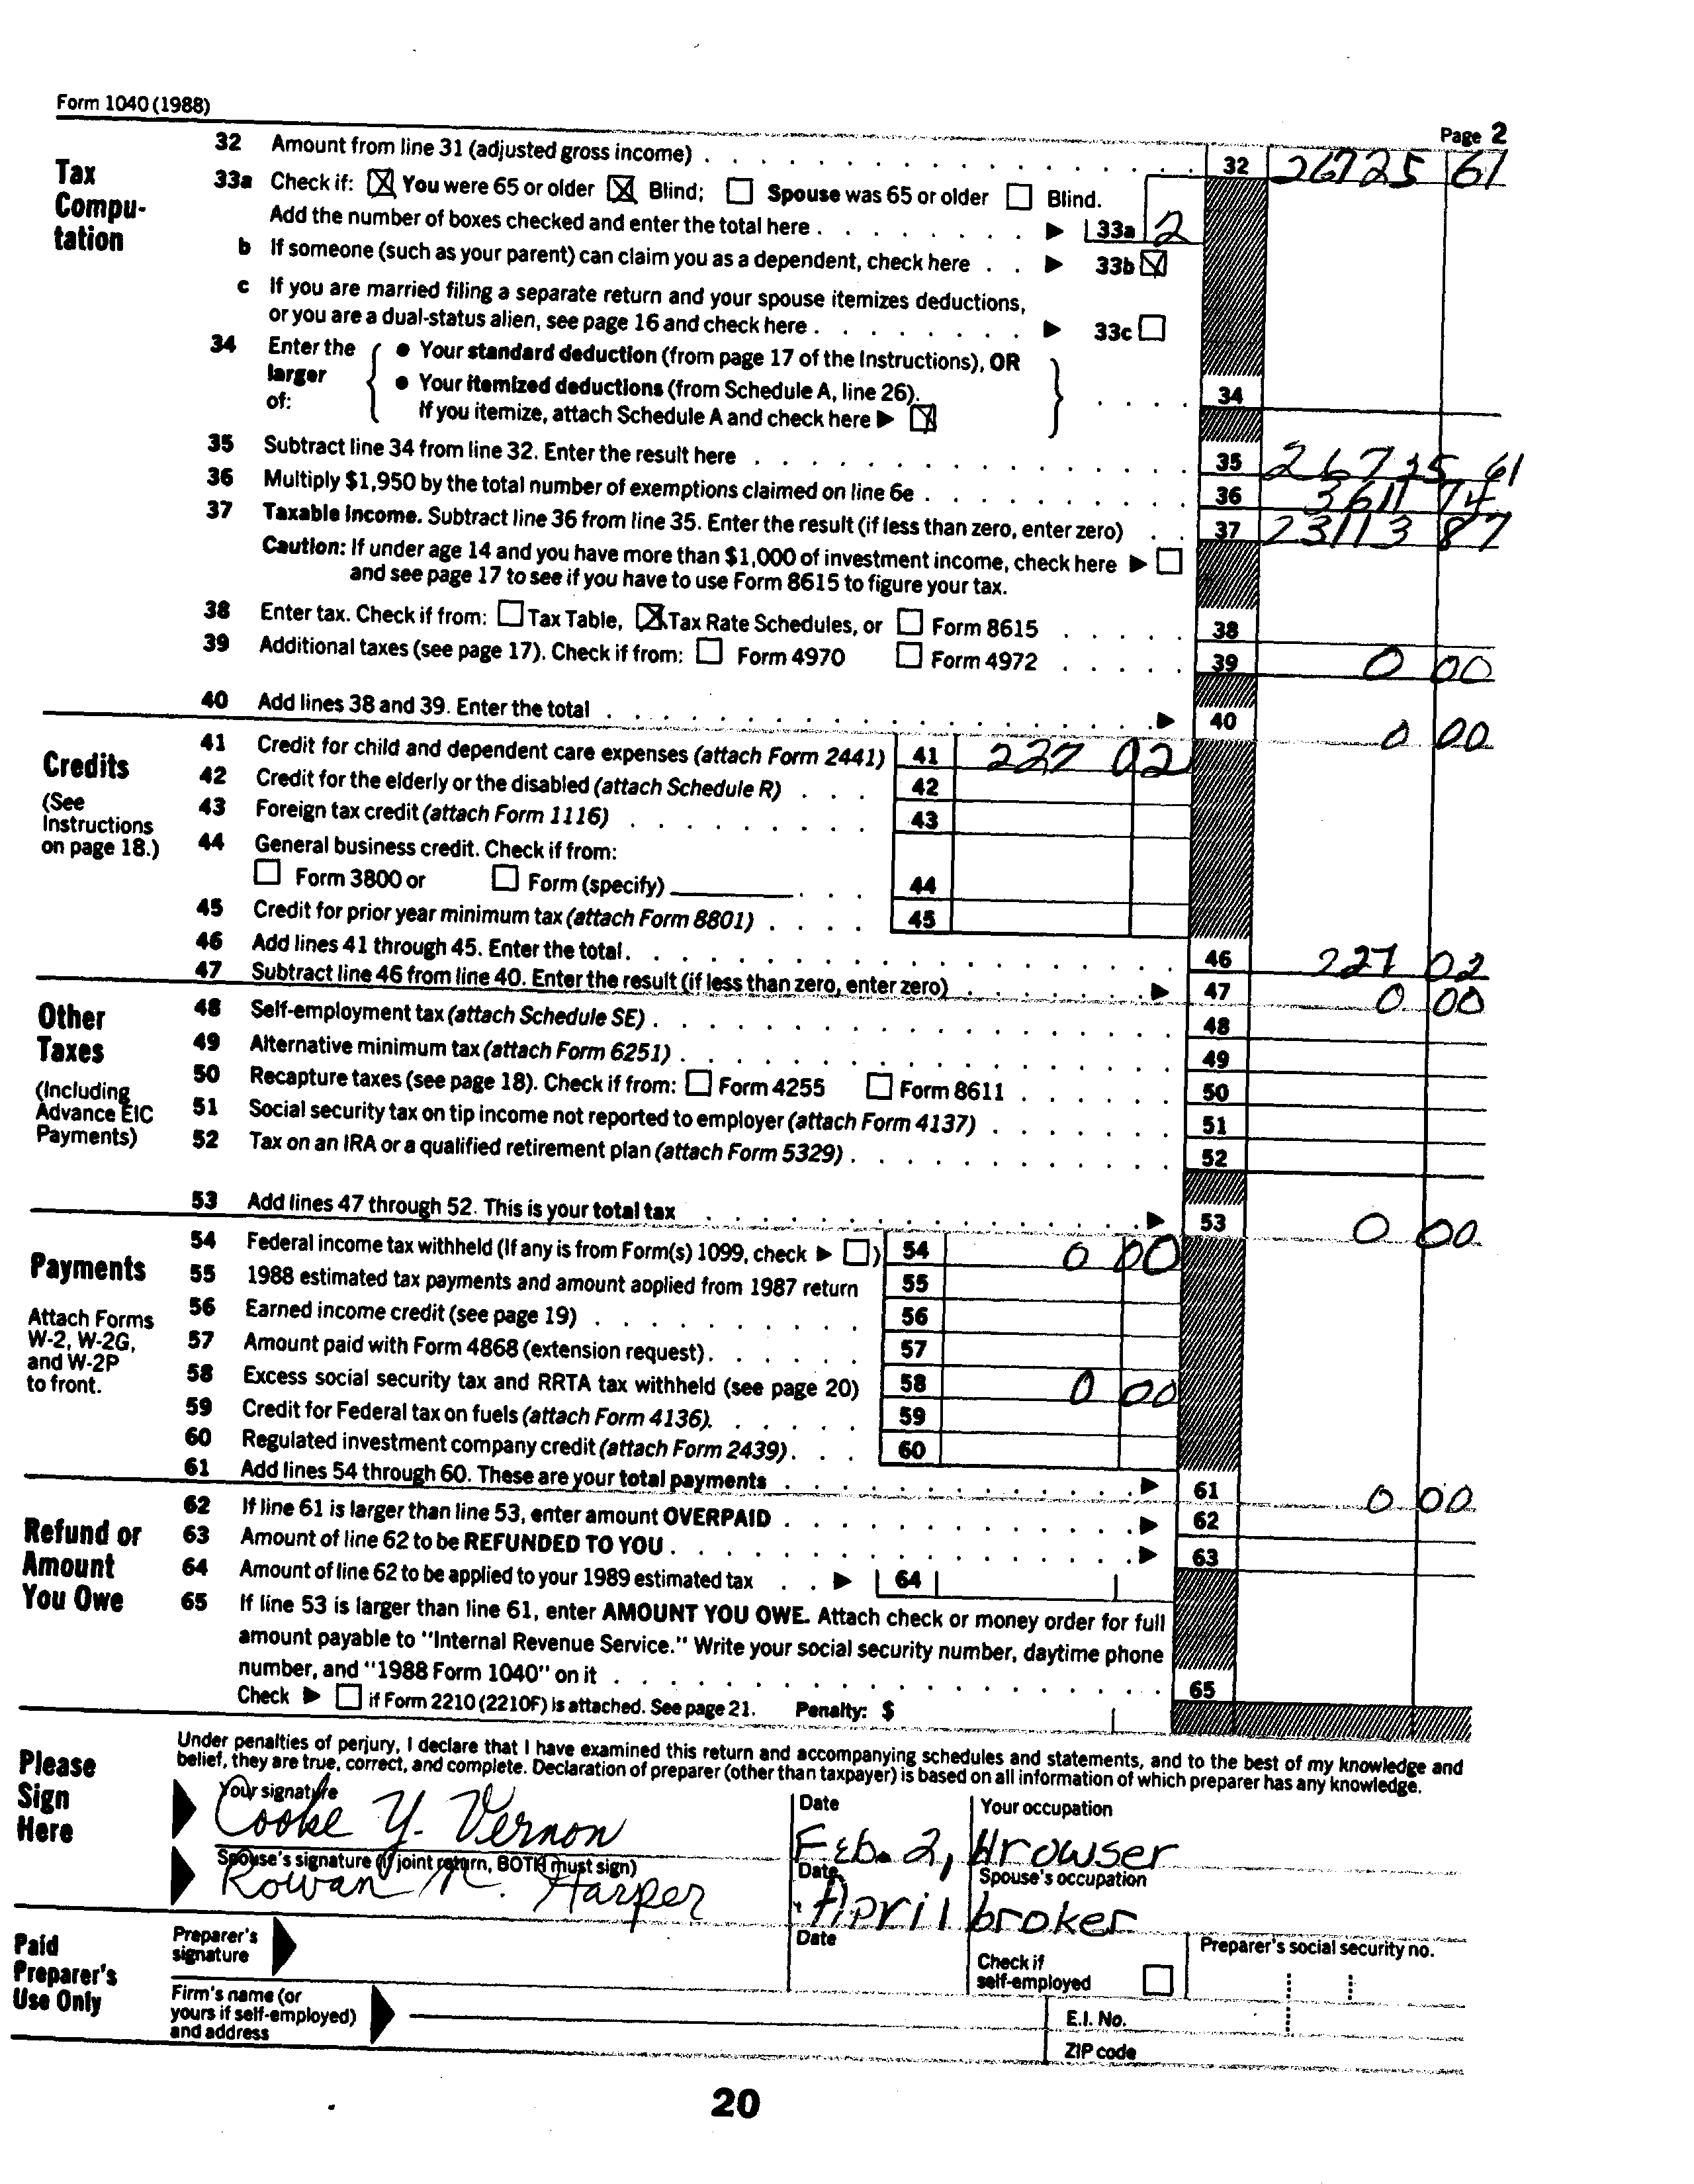 Form 1040 (1988)
Page 2
Tax Compu-tation
32 Amount from line 31 (adjusted gross income) 32 26725 61
33a Check if: ☒ You were 65 or older ☒ Blind; ☐ Spouse was 65 or older ☐ Blind.
Add the number of boxes checked and enter the total here ▶ 33a 2
b If someone (such as your parent) can claim you as a dependent, check here ▶ 33b ☒
c If you are married filing a separate return and your spouse itemizes deductions,
or you are a dual-status alien, see page 16 and check here ▶ 33c ☐
34 Enter the larger of: { ● Your standard deduction (from page 17 of the Instructions), OR
● Your itemized deductions (from Schedule A, line 26).
If you itemize, attach Schedule A and check here ▶ ☒ } 34
35 Subtract line 34 from line 32. Enter the result here 35 26725 61
36 Multiply $1,950 by the total number of exemptions claimed on line 6e 36 3611 74
37 Taxable income. Subtract line 36 from line 35. Enter the result (if less than zero, enter zero) 37 23113 87
Caution: If under age 14 and you have more than $1,000 of investment income, check here ▶ ☐
and see page 17 to see if you have to use Form 8615 to figure your tax.
38 Enter tax. Check if from: ☐ Tax Table, ☒ Tax Rate Schedules, or ☐ Form 8615 38
39 Additional taxes (see page 17). Check if from: ☐ Form 4970 ☐ Form 4972 39 0 00
40 Add lines 38 and 39. Enter the total ▶ 40 0 00
Credits
(See Instructions on page 18.)
41 Credit for child and dependent care expenses (attach Form 2441) 41 227 02
42 Credit for the elderly or the disabled (attach Schedule R) 42
43 Foreign tax credit (attach Form 1116) 43
44 General business credit. Check if from:
☐ Form 3800 or ☐ Form (specify) 44
45 Credit for prior year minimum tax (attach Form 8801) 45
46 Add lines 41 through 45. Enter the total 46 227 02
47 Subtract line 46 from line 40. Enter the result (if less than zero, enter zero) ▶ 47 0 00
Other Taxes
(Including Advance EIC Payments)
48 Self-employment tax (attach Schedule SE) 48
49 Alternative minimum tax (attach Form 6251) 49
50 Recapture taxes (see page 18). Check if from: ☐ Form 4255 ☐ Form 8611 50
51 Social security tax on tip income not reported to employer (attach Form 4137) 51
52 Tax on an IRA or a qualified retirement plan (attach Form 5329) 52
53 Add lines 47 through 52. This is your total tax ▶ 53 0 00
Payments
Attach Forms W-2, W-2G, and W-2P to front.
54 Federal income tax withheld (If any is from Form(s) 1099, check ▶ ☐) 54 0 00
55 1988 estimated tax payments and amount applied from 1987 return 55
56 Earned income credit (see page 19) 56
57 Amount paid with Form 4868 (extension request) 57
58 Excess social security tax and RRTA tax withheld (see page 20) 58 0 00
59 Credit for Federal tax on fuels (attach Form 4136) 59
60 Regulated investment company credit (attach Form 2439) 60
61 Add lines 54 through 60. These are your total payments ▶ 61 0 00
Refund or Amount You Owe
62 If line 61 is larger than line 53, enter amount OVERPAID ▶ 62
63 Amount of line 62 to be REFUNDED TO YOU ▶ 63
64 Amount of line 62 to be applied to your 1989 estimated tax ▶ 64
65 If line 53 is larger than line 61, enter AMOUNT YOU OWE. Attach check or money order for full
amount payable to "Internal Revenue Service." Write your social security number, daytime phone
number, and "1988 Form 1040" on it 65
Check ▶ ☐ if Form 2210 (2210F) is attached. See page 21. Penalty: $
Please Sign Here
Under penalties of perjury, I declare that I have examined this return and accompanying schedules and statements, and to the best of my knowledge and
belief, they are true, correct, and complete. Declaration of preparer (other than taxpayer) is based on all information of which preparer has any knowledge.
Your signature Date Your occupation
Cooke Y. Vernon Feb. 2, Hrowser
Spouse's signature (if joint return, BOTH must sign) Date Spouse's occupation
Rowan K. Harper April broker
Paid Preparer's Use Only
Preparer's signature Date Check if self-employed ☐ Preparer's social security no.
Firm's name (or yours if self-employed) and address
E.I. No.
ZIP code
20